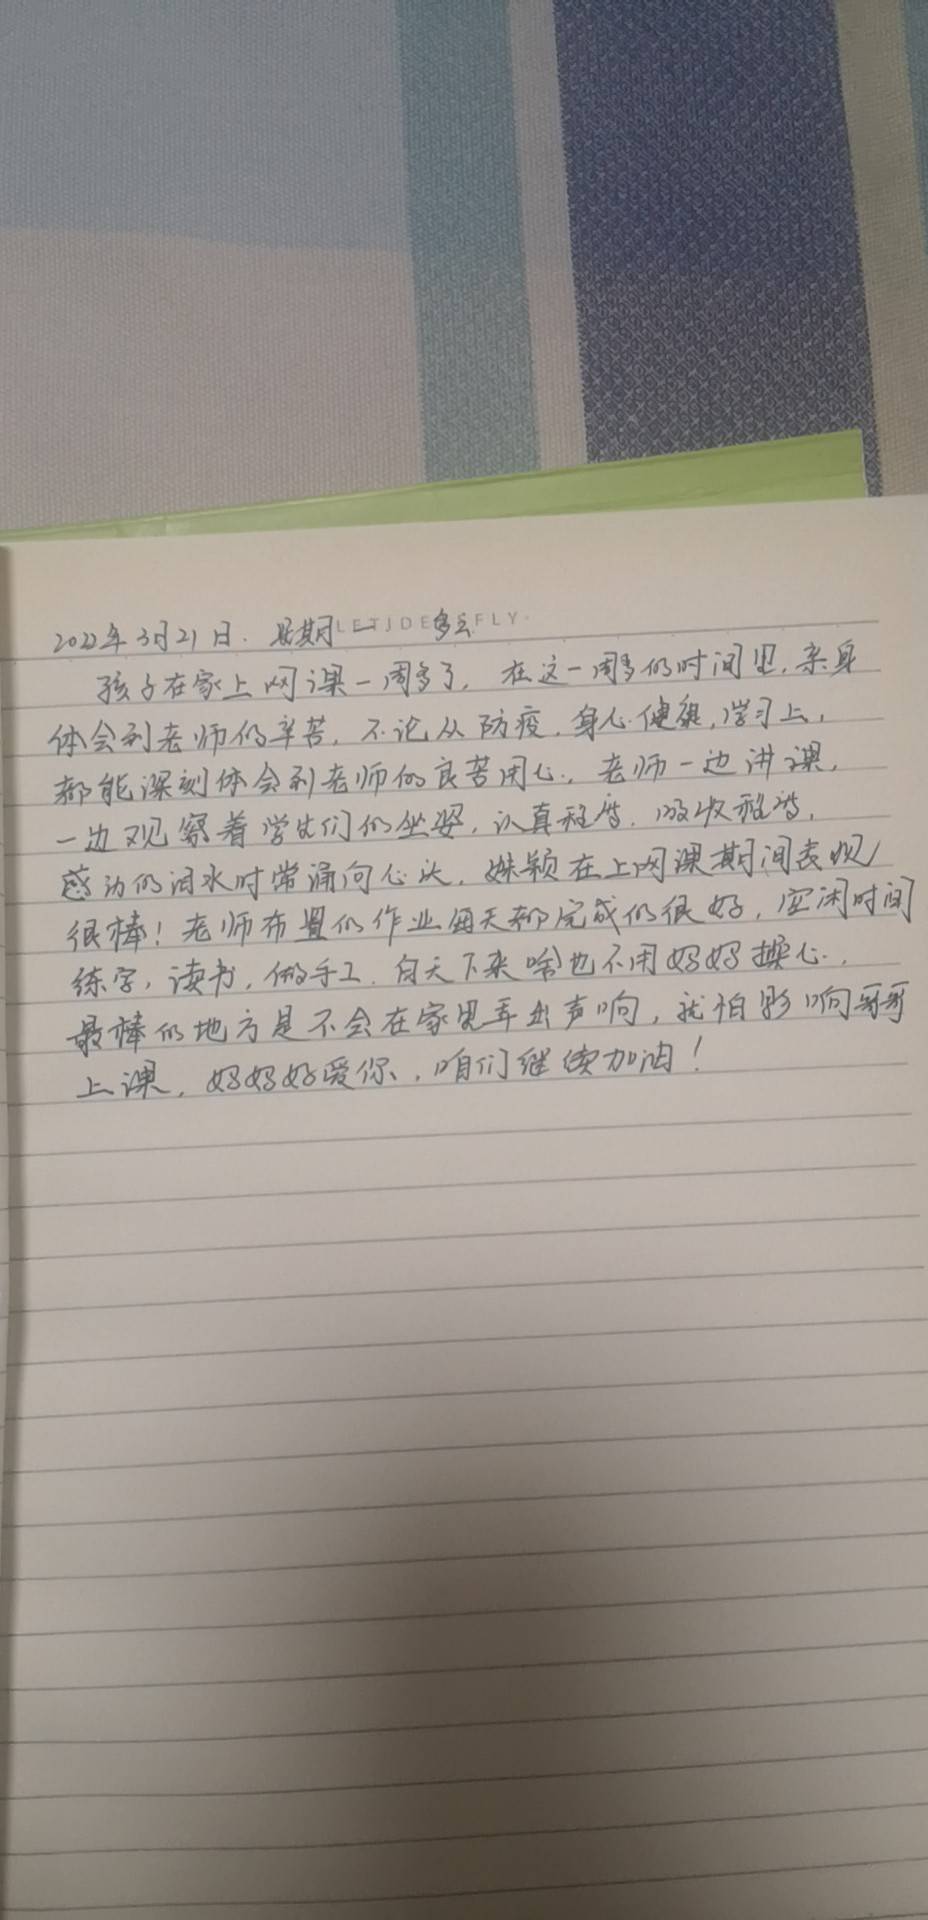 2022年3月21日. 星期一 多云
LETIDE FLY.
孩子在家上网课一周多了, 在这一周多的时间里, 亲身
体会到老师的辛苦, 不论从防疫, 身心健康, 学习上,
都能深刻体会到老师的良苦用心, 老师一边讲课,
一边观察着学生们的坐姿, 认真程度, 吸收程度,
感动的泪水时常涌向心头, 姝颖在上网课期间表现
很棒! 老师布置的作业每天都完成的很好, 空闲时间
练字, 读书, 做手工, 白天下来啥也不用妈妈操心,
最棒的地方是不会在家里弄出声响, 就怕影响哥哥
上课, 妈妈好爱你, 咱们继续加油!